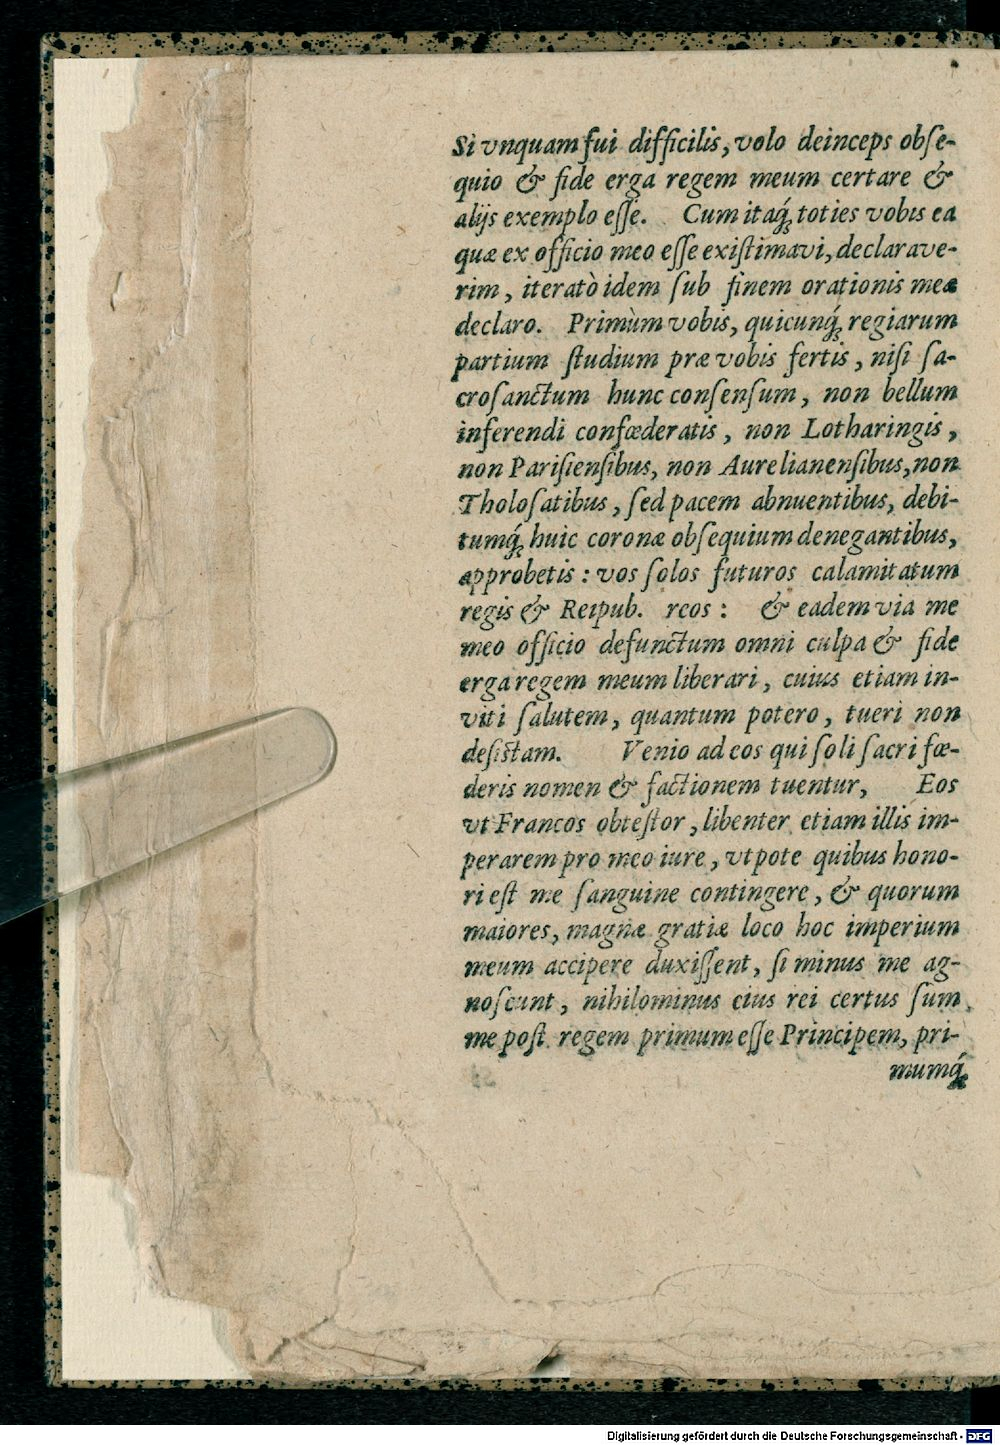 Si vnquam fui difficilis, volo deinceps obſe-
quio & fide erga regem meum certare &
alijs exemplo eſſe. Cum itaq́; toties vobis ea
quæ ex officio meo eſſe exiſtimavi, declarave-
rim, iteratò idem ſub finem orationis meæ
declaro. Primùm vobis, quicunq́; regiarum
partium ſtudium præ vobis fertis, niſi ſa-
croſanctum hunc conſenſum, non bellum
inferendi confœderatis, non Lotharingis,
non Pariſienſibus, non Aurelianenſibus, non
Tholoſatibus, ſed pacem abnuentibus, debi-
tumq́; huic coronæ obſequium denegantibus,
approbetis: vos ſolos futuros calamitatum
regis & Reipub. reos: & eadem via me
meo officio defunctum omni culpa & fide
erga regem meum liberari, cuius etiam in-
viti ſalutem, quantum potero, tueri non
deſiſtam. Venio ad eos qui ſoli ſacri fœ-
deris nomen & factionem tuentur, Eos
vt Francos obteſtor, libenter etiam illis im-
perarem pro meo iure, vtpote quibus hono-
ri eſt me ſanguine contingere, & quorum
maiores, magnæ gratiæ loco hoc imperium
meum accipere duxiſſent, ſi minus me ag-
noſcunt, nihilominus eius rei certus ſum,
me poſt regem primum eſſe Principem, pri-
mumq́;
Digitalisierung gefördert durch die Deutsche Forschungsgemeinschaft - DFG